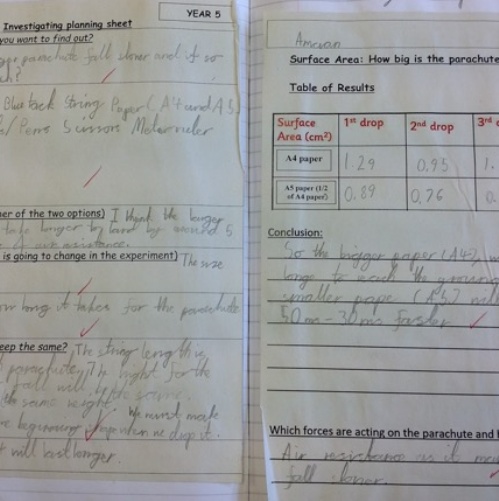 YEAR 5
Investigating planning sheet
you want to find out?
parachute fall slower and if so
Blue tack String Paper (A4 and A5)
Pens Scissors Meter ruler
er of the two options) I think the larger
take longer to land by around 5
air resistance.
is going to change in the experiment) The size
how long it takes for the parachute
eep the same? The string length
parachute, The hight for the
fall will be the same.
the same weight. We must make
beginning when we drop it.
t will last longer.
Surface Area: How big is the parachute
Table of Results
Surface Area (cm²) 1st drop 2nd drop 3rd d
A4 paper 1.29 0.95 1.
A5 paper (1/2 of A4 paper) 0.89 0.76 0.
Conclusion:
So the bigger paper (A4), w
longe to reach the groun
smaller pape (A5) w
50ms - 30ms faster
Which forces are acting on the parachute and h
Air resistance as it m
fall slower.